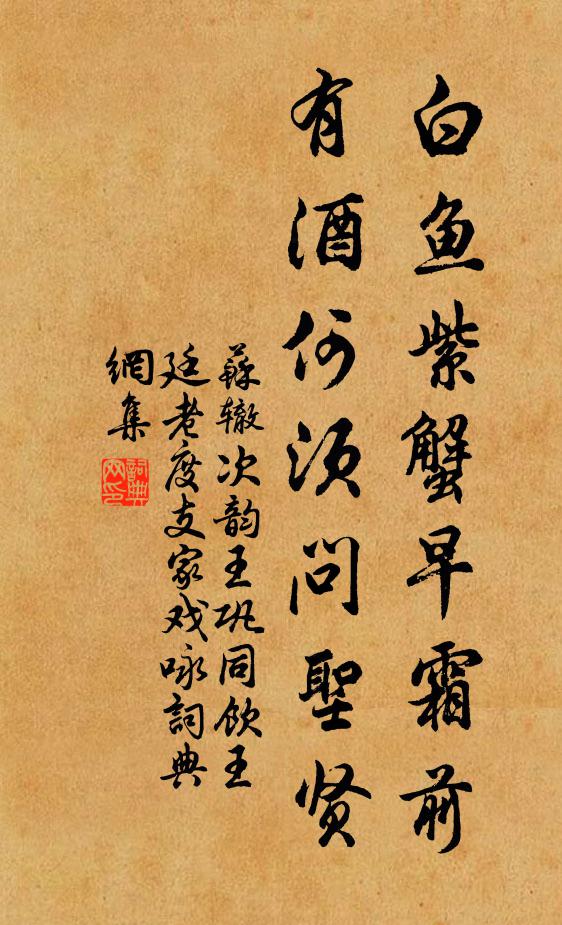 白鱼紫蟹早霜前
有酒何须问聖贤
蘇辙次韵王巩同飲王
廷老度支家戏咏詞典
網集
詞典
网印